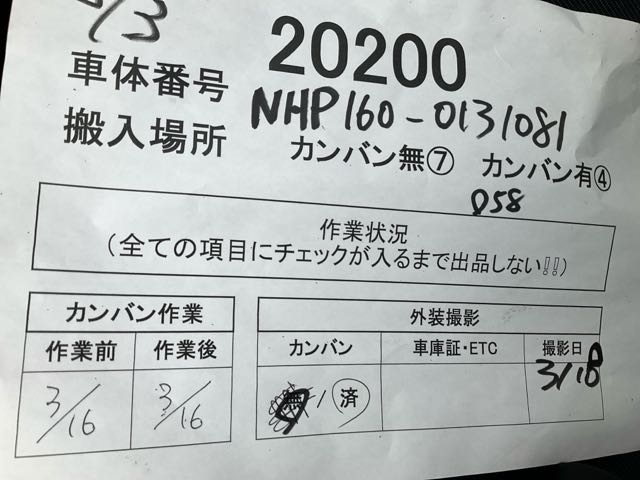 2/3
20200
車体番号 NHP160-0131081
搬入場所 カンバン無⑦ カンバン有④
058
作業状況
(全ての項目にチェックが入るまで出品しない!!)
カンバン作業 外装撮影
作業前 作業後 カンバン 車庫証・ETC 撮影日
3/16 3/16 無/済 3/18